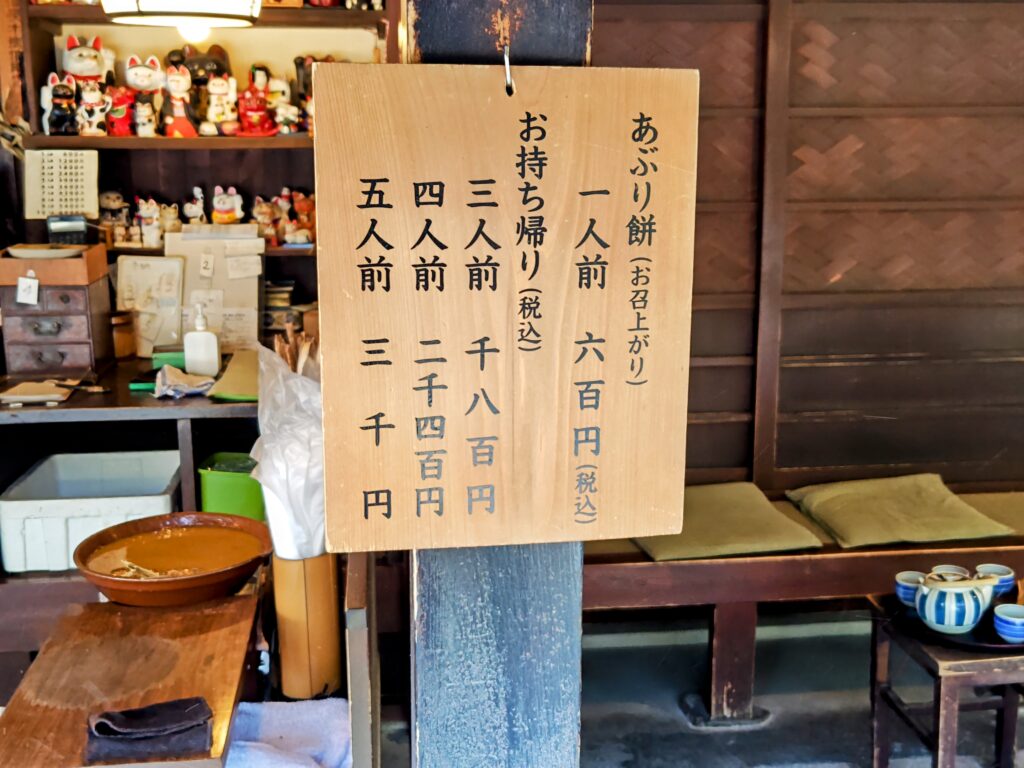 あぶり餅(お召上がり)
一人前 六百円(税込)
お持ち帰り(税込)
三人前 千八百円
四人前 二千四百円
五人前 三千円
2